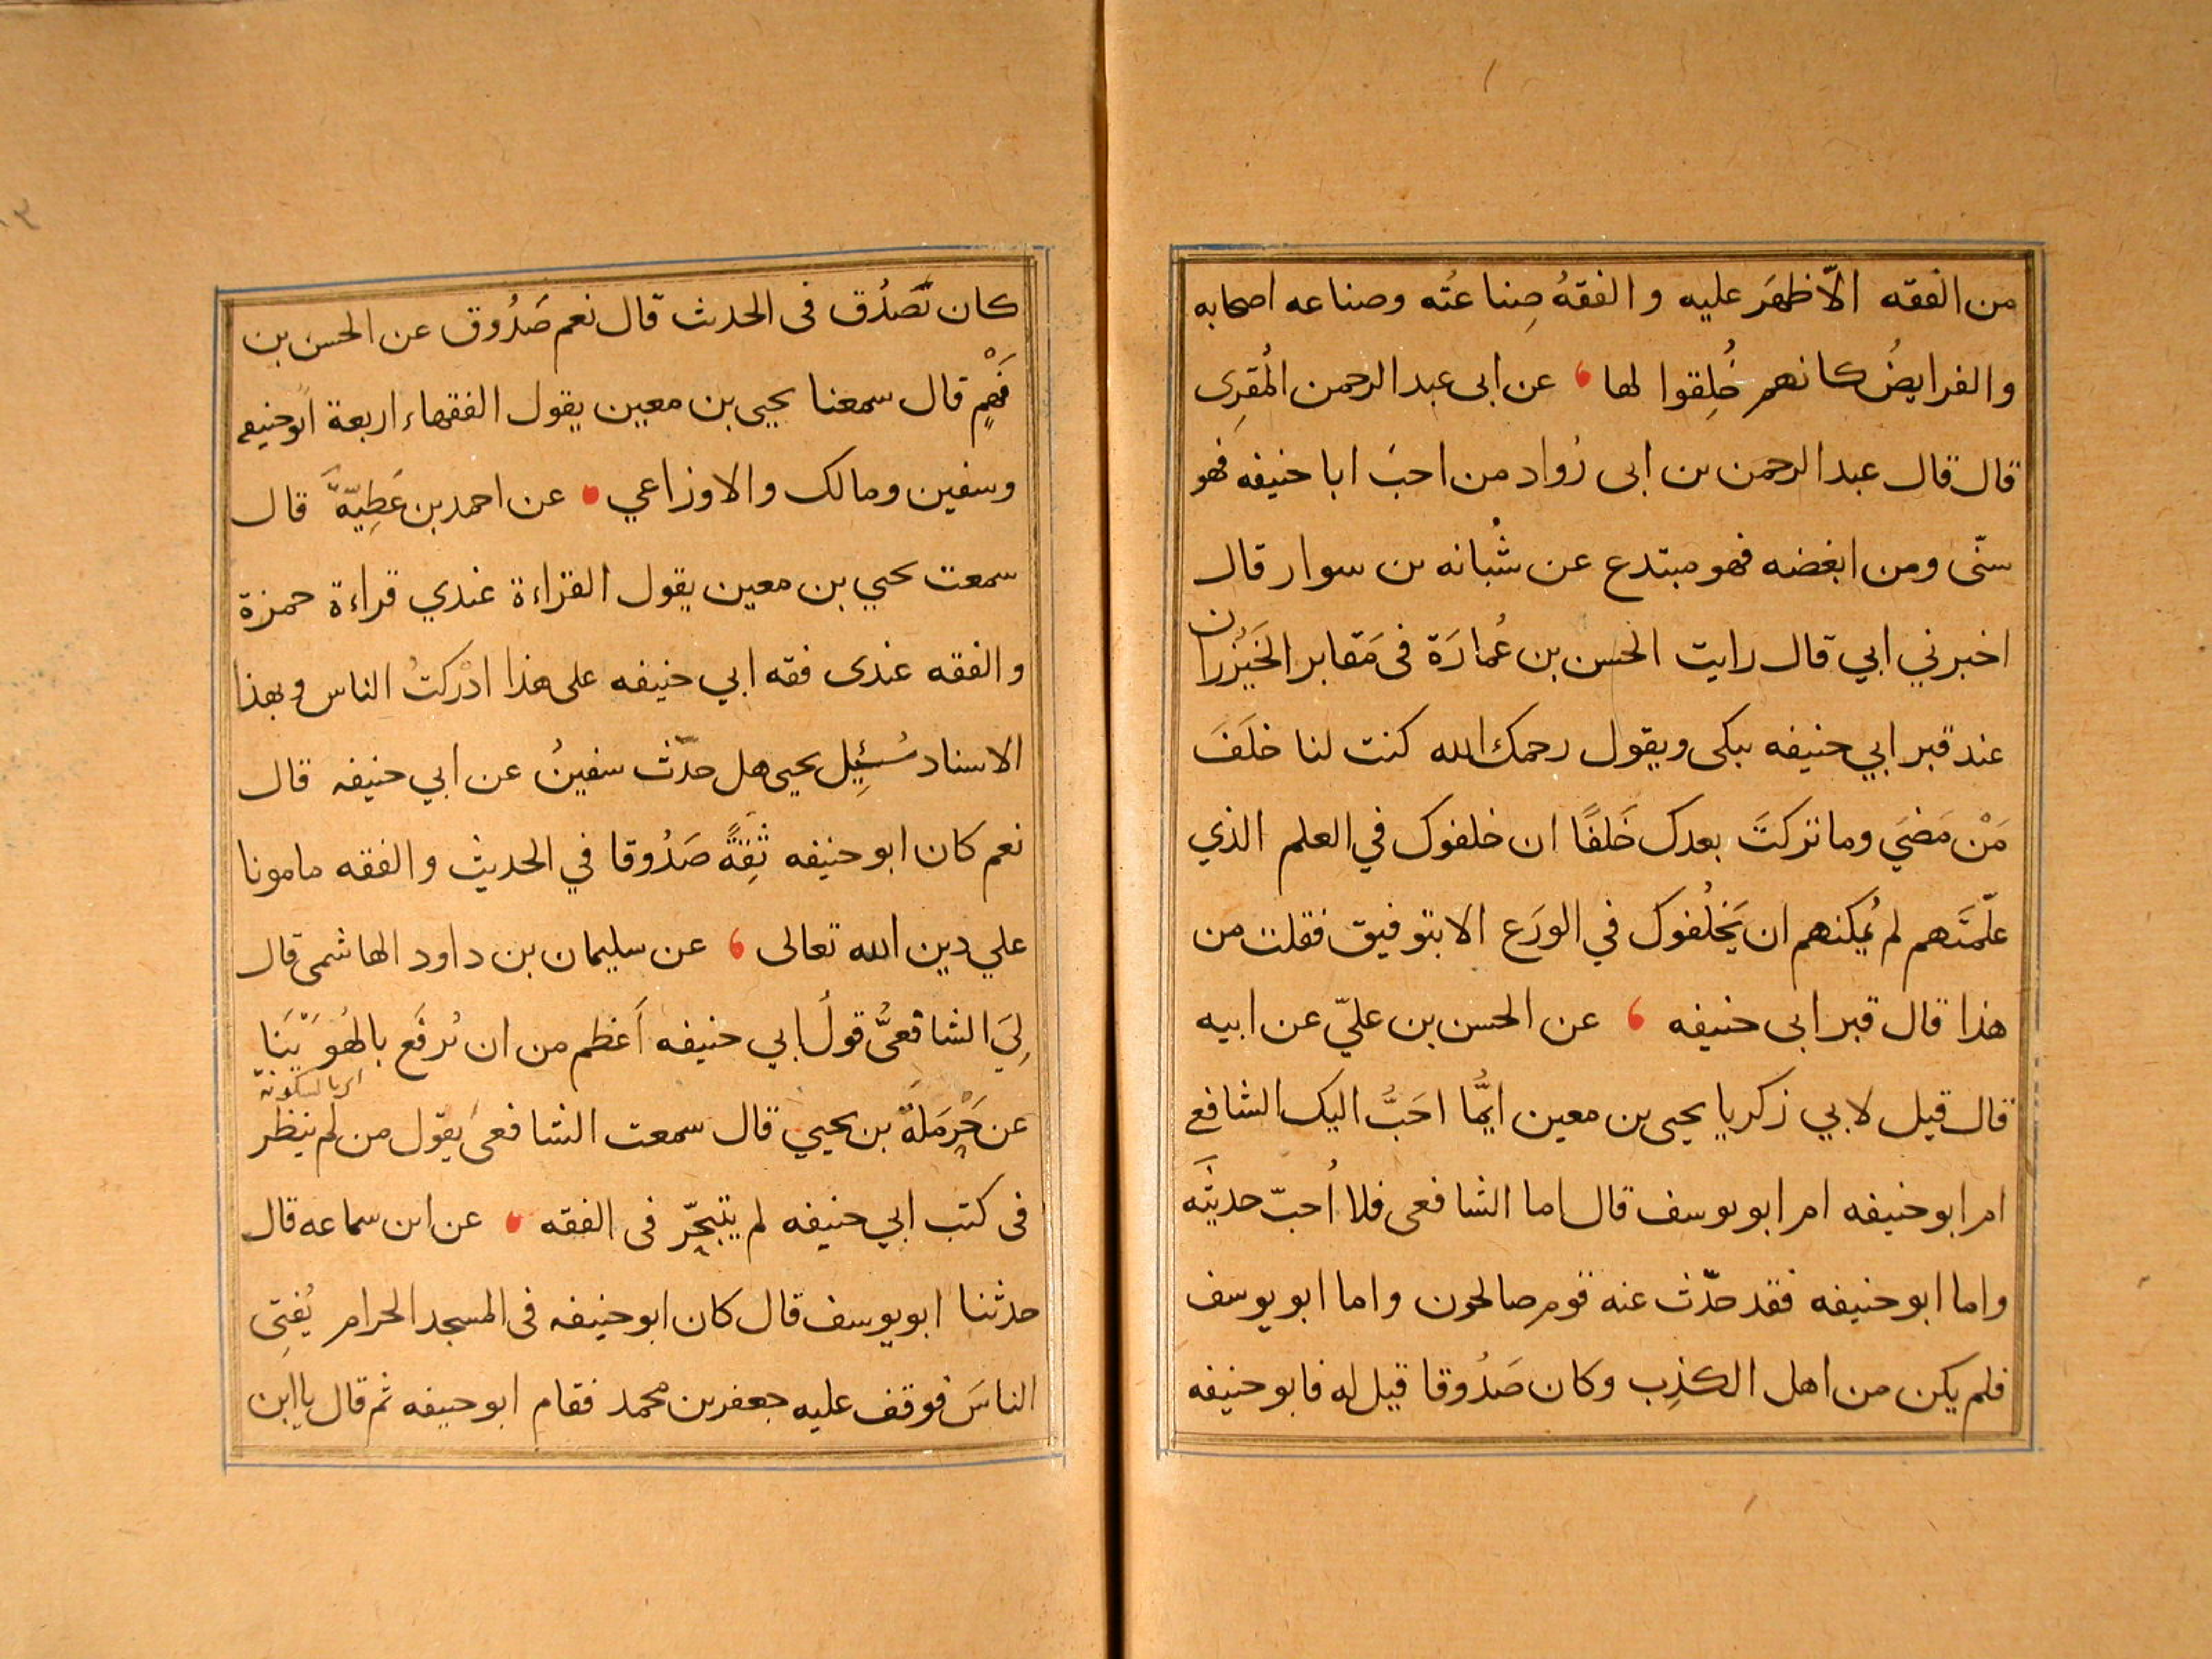 من الفقه الّا ظهَر عليه و الفقهُ صِناعتُه وصناعه اصحابه
والفرايضُ كانهم خُلِقوا لها عن ابى عبد الرحمن المُقرِى
قال قال عبد الرحمن بن ابى رُواد من احبَ ابا حنيفه فهو
سنّى ومن ابغضه فهو مبتدع عن شُبانه بن سوار قال
اخبرني ابي قال رايت الحسن بن عُمارَة فى مَقابر الخَيْزُران
عند قبر ابي حنيفه يبكى ويقول رحمك الله كنت لنا خلَفَ
مَنْ مَضيَ وما تركتَ بعدك خَلفًا ان خلفوك في العلم الذي
علّمتَهم لم يُمكنهم ان يَخلُفوك في الورَع الا بتوفيق فقلت من
هذا قال قبر ابى حنيفه عن الحسن بن عليّ عن ابيه
قال قيل لابي زكريا يحيى بن معين ايُّما احَبُّ اليك الشافعي
ام ابو حنيفه ام ابو يوسف قال اما الشافعى فلا اُحبّ حديثَه
واما ابو حنيفه فقد حدّث عنه قوم صالحون واما ابو يوسف
فلم يكن من اهل الكذِب وكان صَدُوقا قيل له فابو حنيفه
كان تَصَدُق فى الحديث قال نعم صَدُوق عن الحسن بن
فَهْمٍ قال سمعنا يحيي بن معين يقول الفقهاء اربعة ابو حنيفه
وسفين ومالك والاوزاعي عن احمد بن عَطِيّهَّ قال
سمعت يحيي بن معين يقول القراءة عندي قراءة حمزة
والفقه عندى فقه ابي حنيفه على هذا ادْركتُ الناس وبهذا
الاسناد سُئِل يحيى هل حدّث سفينُ عن ابي حنيفه قال
نعم كان ابو حنيفه ثِقةً صَدُوقا في الحديث والفقه مامونا
علي دين الله تعالى عن سليمان بن داود الهاشمى قال
لِيَ الشافعىُّ قولُ ابي حنيفه اَعظم من ان تُرفَع بالهُوَيْنَا
اى بالسكونة
عن حَرْمَلَةَ بن يحيي قال سمعت الشافعىَ يَقول من لم ينظر
فى كتب ابي حنيفه لم يتبحّر فى الفقه عن ابن سماعه قال
حدثنا ابو يوسف قال كان ابو حنيفه فى المسجد الحرام يُفتِى
الناسَ فوقف عليه جعفر بن محمد فقام ابو حنيفه ثم قال يا ابن